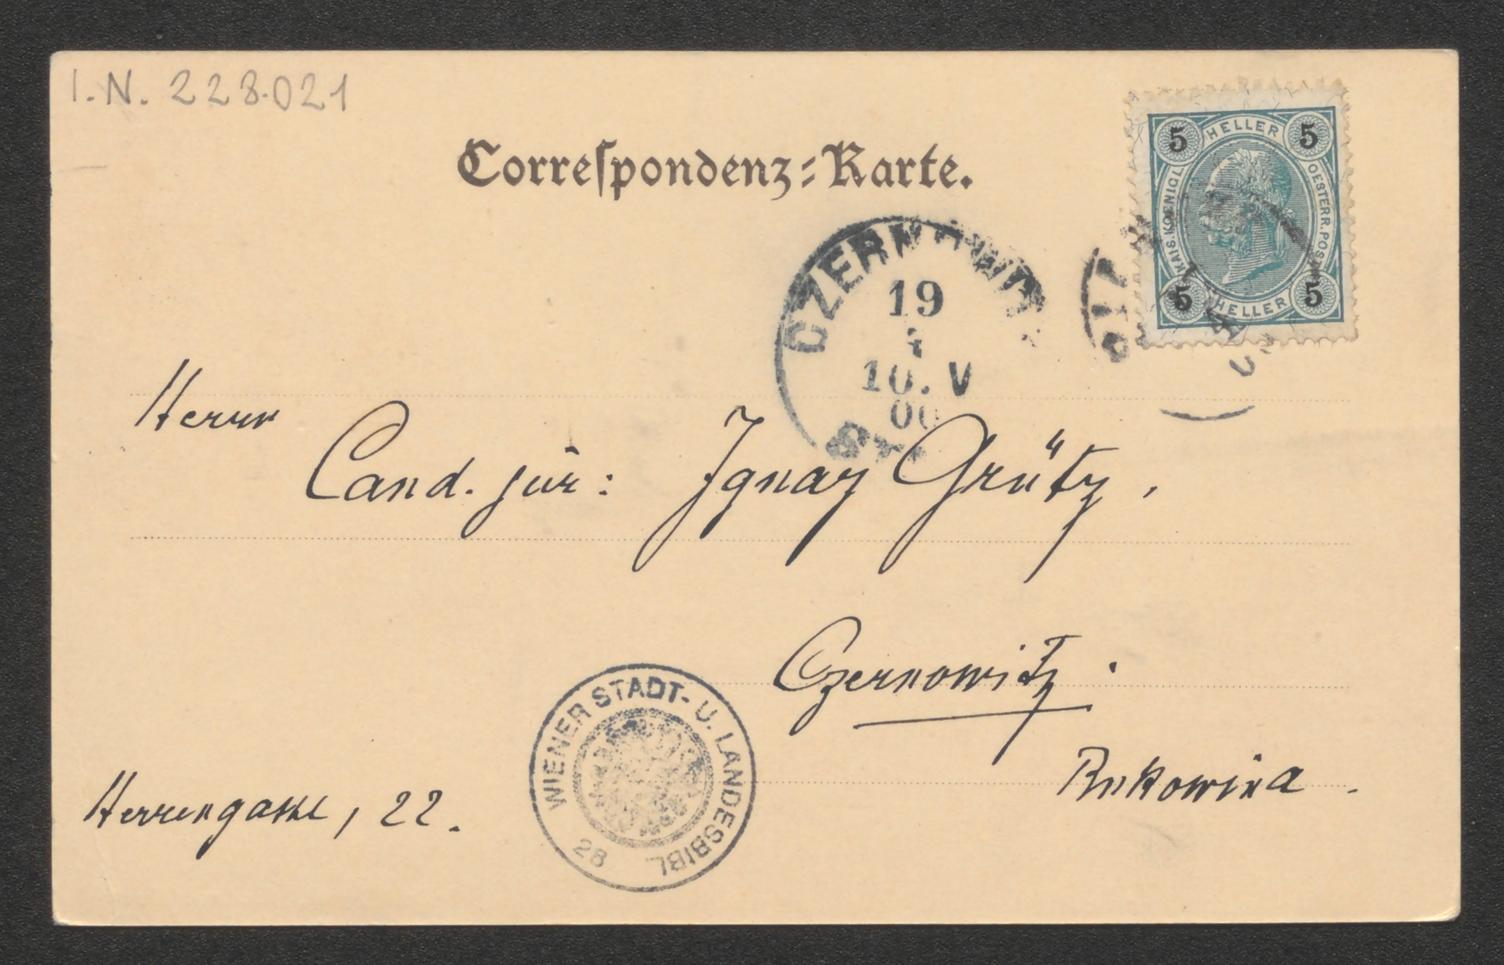 I.N. 228.021
Correspondenz-Karte.
5 HELLER 5
KAIS. KOENIGL. OESTERR. POST
5 HELLER 5
CZERNOWITZ
19
10. V
00
Herrn
Cand. jur: Ignaz Grütz,
Czernowitz.
Bukowina.
Herrengasse, 22.
WIENER STADT- U. LANDESBIBL.
28